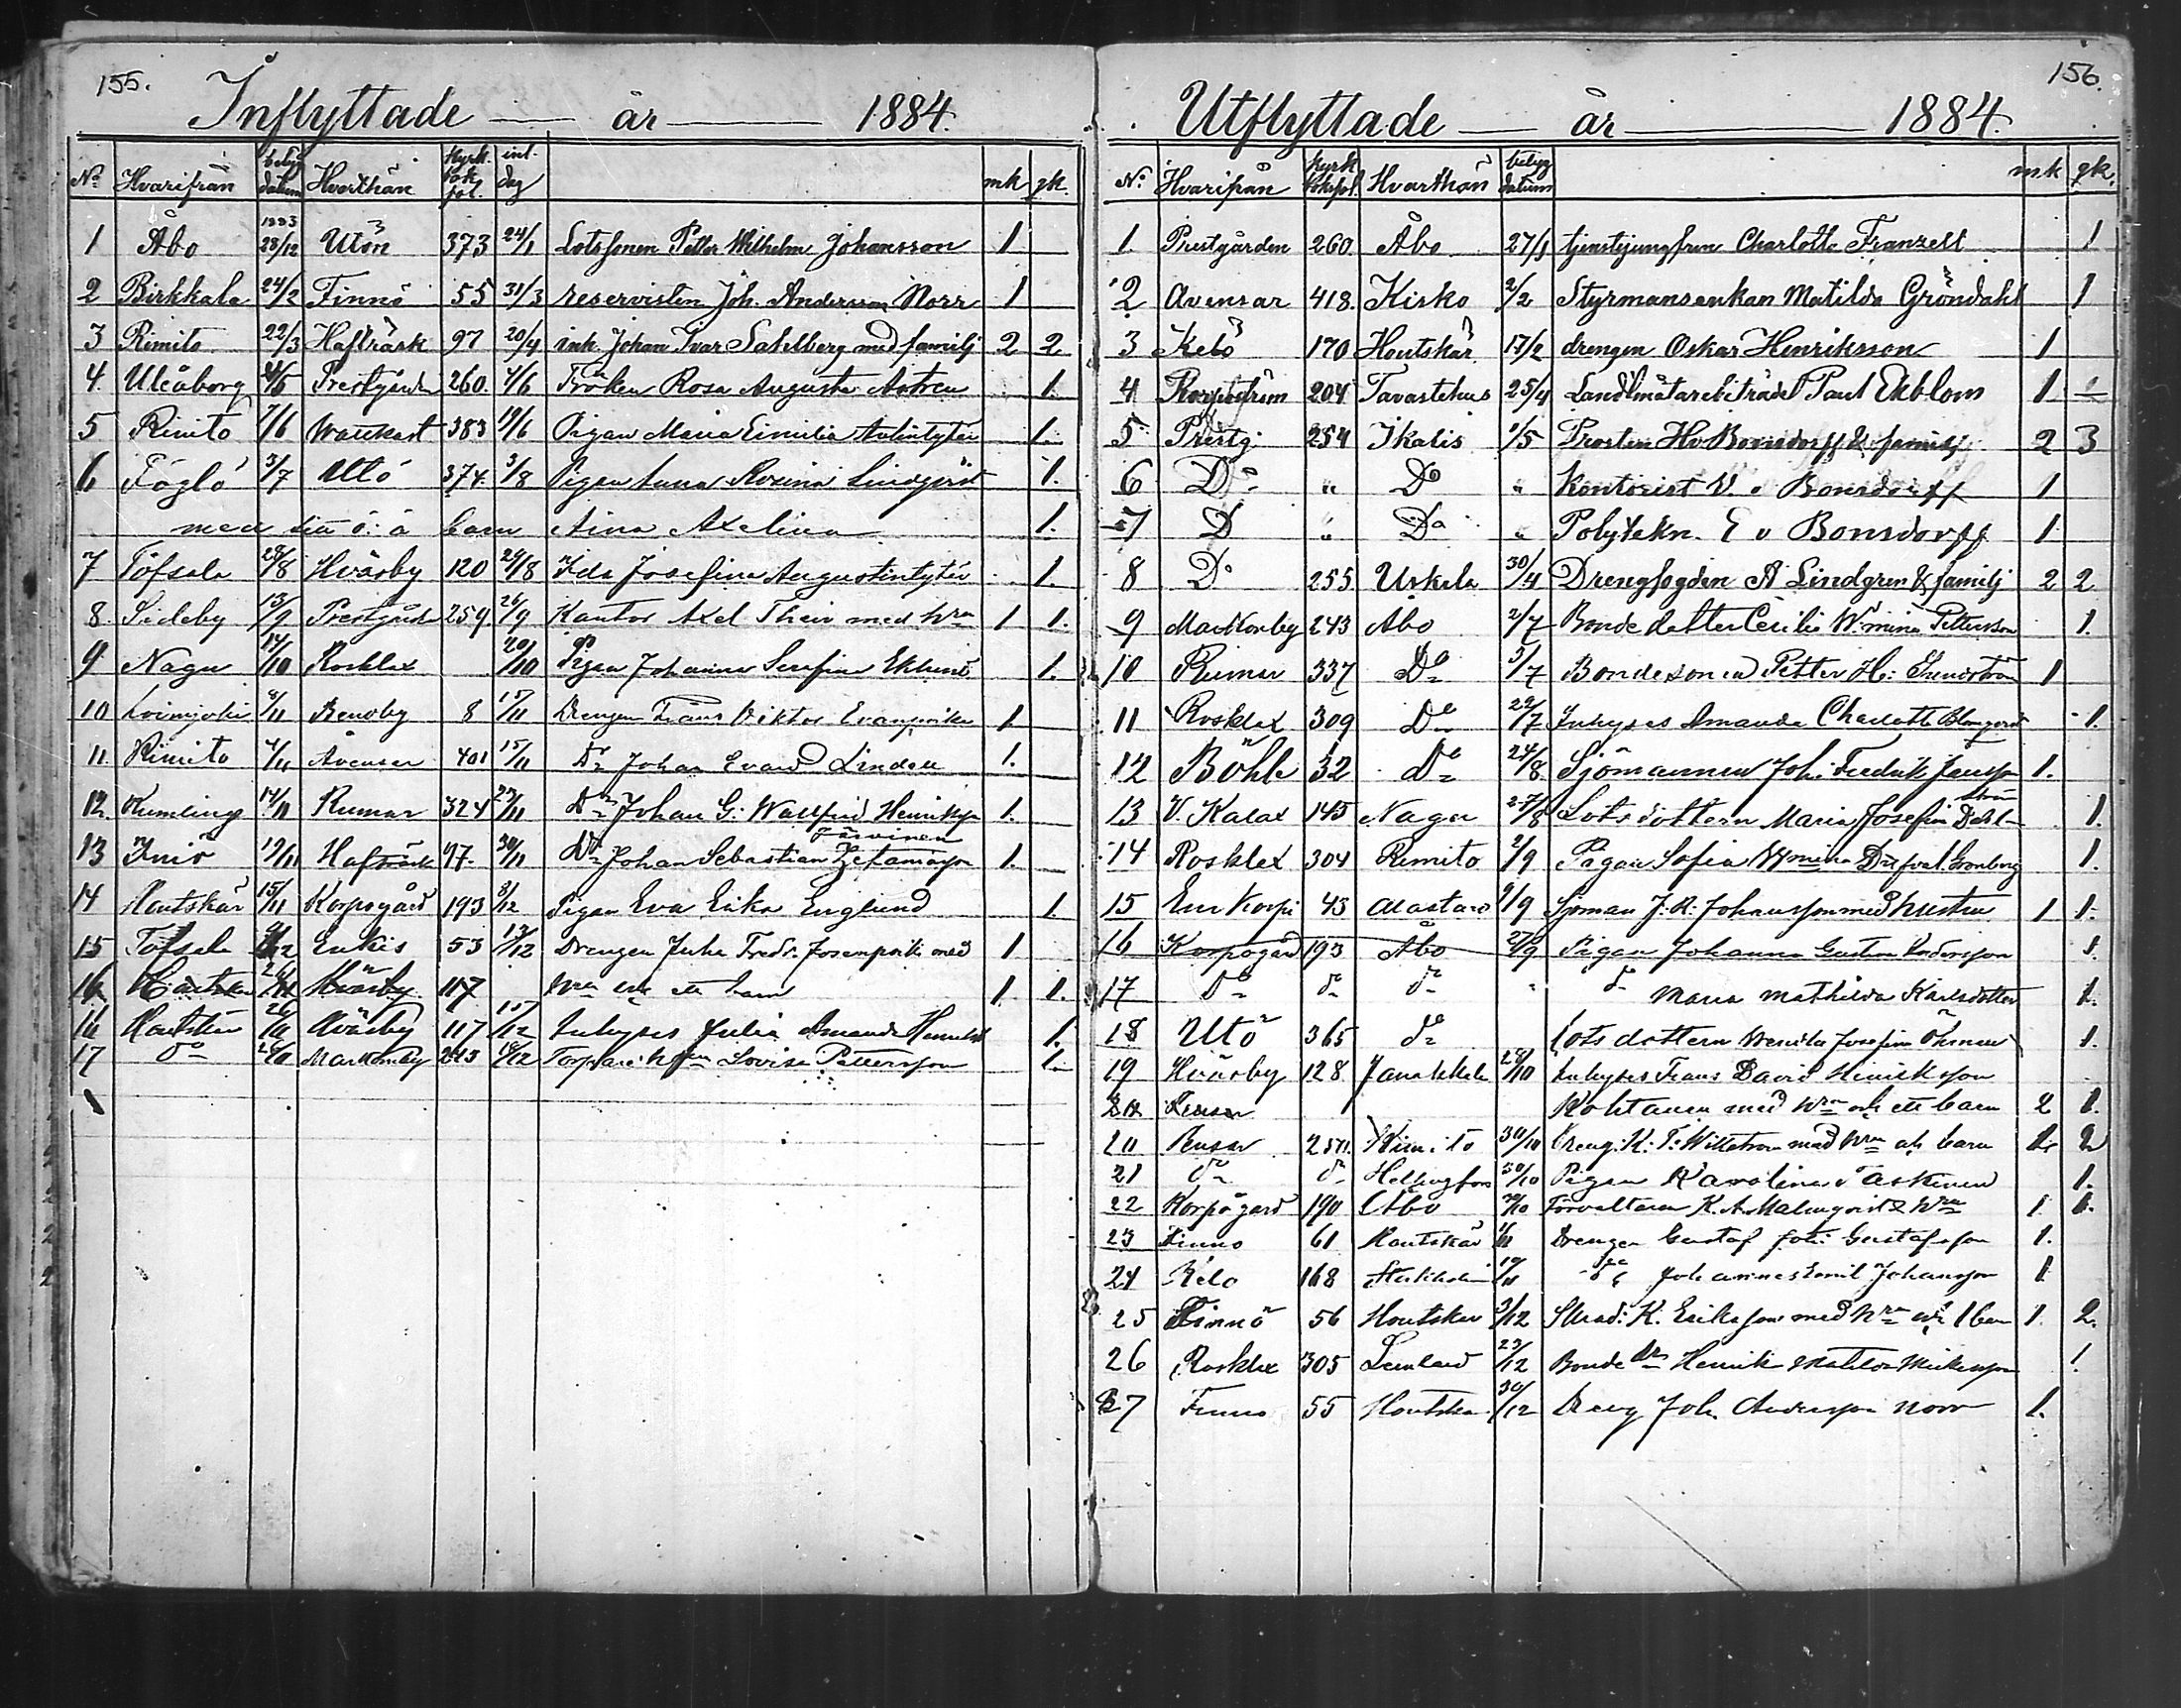 155.
Inflyttade — år — 1884.
No Hvarifrån betyg datum Hvarthän Kyrk bok fol. inl. dag mk qk.
1 Åbo 1883 28/12 Utön 373 24/1 Lotssonen Petter Wilhelm Johansson 1
2 Birkkala 24/2 Finnö 55 31/3 reservisten Joh. Andersson Norr 1
3 Rimito 22/3 Hafträsk 97 20/4 inh. Johan Ivar Sahlberg med familj 2 2
4. Uleåborg Prestgården 260. 4/6 Fröken Rosa Augusta Astren 1.
5 Rimito 7/6 Wattkast 383 19/6 Pigan Maria Emilia Antintytär 1.
6 Föglö 3/7 Utö 374. 3/8 Pigan Anna Rosina Lindqvist 1.
med sitt o: ä barn Aina Axelina 1.
7 Töfsala 28/8 Hväsby 120 24/8 Ida Josefina Augustintytär 1.
8. Sideby 13/9 Prestgård 259 26/9 Kantor Axel Thein med hru 1 1.
9 Nagu 14/10 Rosklax 20/10 Pigan Johanna Serafina Eklund 1.
10 Loimijoki 8/11 Benoby 8 15/11 Drengen Frans Viktor 1
11. Rimito 4/11 Avensar 401 15/11 Do Johan Evard Lindell 1.
12. Kumlinge 14/11 Rumar 324 23/11 Do Johan G: Wallfrid Henriksson 1.
Järvinen
13 Iniö 19/11 Hafträsk 97. 30/11 Do Johan Sebastian 1.
14 Houtskär 15/11 Korpogård 193 8/12 Pigan Eva Erika Englund 1.
15 Töfsala Enkis 53 13/12 Drengen Juha Fredr. med 1
16 Houtskär Hväsby 117 hru och ett barn 1 1.
16 Houtskär Hväsby 117 15/12 Inhyses Julia Amanda 1.
17 do Markomby 243 18/12 Torpare hru Lovisa Pettersson 1.
156.
Utflyttade — år — 1884.
No Hvarifrån kyrk boksfol. Hvarthän betyg datum mk qk.
1. Prestgården 260. Åbo 27/1 tjenstejungfrun Charlotta Franzell 1
2 Avensar 418. Kisko 2/2 Styrmansenkan Matilda Gröndahl 1
3 Kelö 170 Houtskär 17/2 drengen Oskar Henriksson 1
4 Korpoström 204 Tavastehus 25/4 Landtmätarebiträdet Paul Ekblom 1
5 Prestg. 254 Ikalis 1/5 Prosten H v Bonsdorff & familj 2 3
6 Do " Do " Kontorist V. v Bonsdorff 1
7 D " Do " Polytekn. E v Bonsdorff 1
8 Do 255 Uskela 30/4 Drengfogden A Lindgren & familj 2 2
9 Markomby 243 Åbo 2/7 Bonde dotter Cecilia W:mina Pettersson 1.
10 Rumar 337 Do 5/7 Bondesonen Petter H: 1
11 Rosklax 309 Do 22/7 Inhyses Amanda Charlotta Blomqvist 1.
12 Böhle 32 Do 24/8 Sjömannen Joh. Fredrik Jansson 1.
13 V. Kalax 145 Nagu 27/8 Lotsdottern Maria Josefina Dahlström 1.
14 Rosklax 304 Rimito 2/9 Pigan Sofia W:mina 1.
15 43 Alastaro 9/9 Sjöman J: R: Johansson med hustru 1 1.
16 Korpogård 193 Åbo 27/9 Pigan Johanna Gustava Andersson 1.
17 Do do do " do Maria Mathilda Karlsdotter 1.
18 Utö 365 do Lotsdottern Josefina Öhman 1.
19 Hväsby 128 Janakkala 28/10 Inhyses Frans David Henriksson
Kohtanen med hru och ett barn 2 1.
20 Rusar Kimito 30/10 Dreng: K: F: Wittström med hru och barn 2
21 do do Helsingfors 30/10 Pigan Karolina Taskinen 1.
22 Korpogård 190 Åbo Förvaltaren K. A. Malmqvist & hru 1. 1.
23 Finnö 61 Houtskär Drengen Gustaf Joh: Gustafsson 1.
24 Kelö 168 Stockholm do Johannes Emil Johansson 1
25 Finnö 56 Houtskär 3/12 Skräd: K. Eriksson med hru och 1 barn 1. 2.
26 Rosklax 305 Lemland 23/12 Bonde Henrik 1.
27 Finnö 55 Houtskär 30/12 Dreng Joh. Andersson Norr 1.